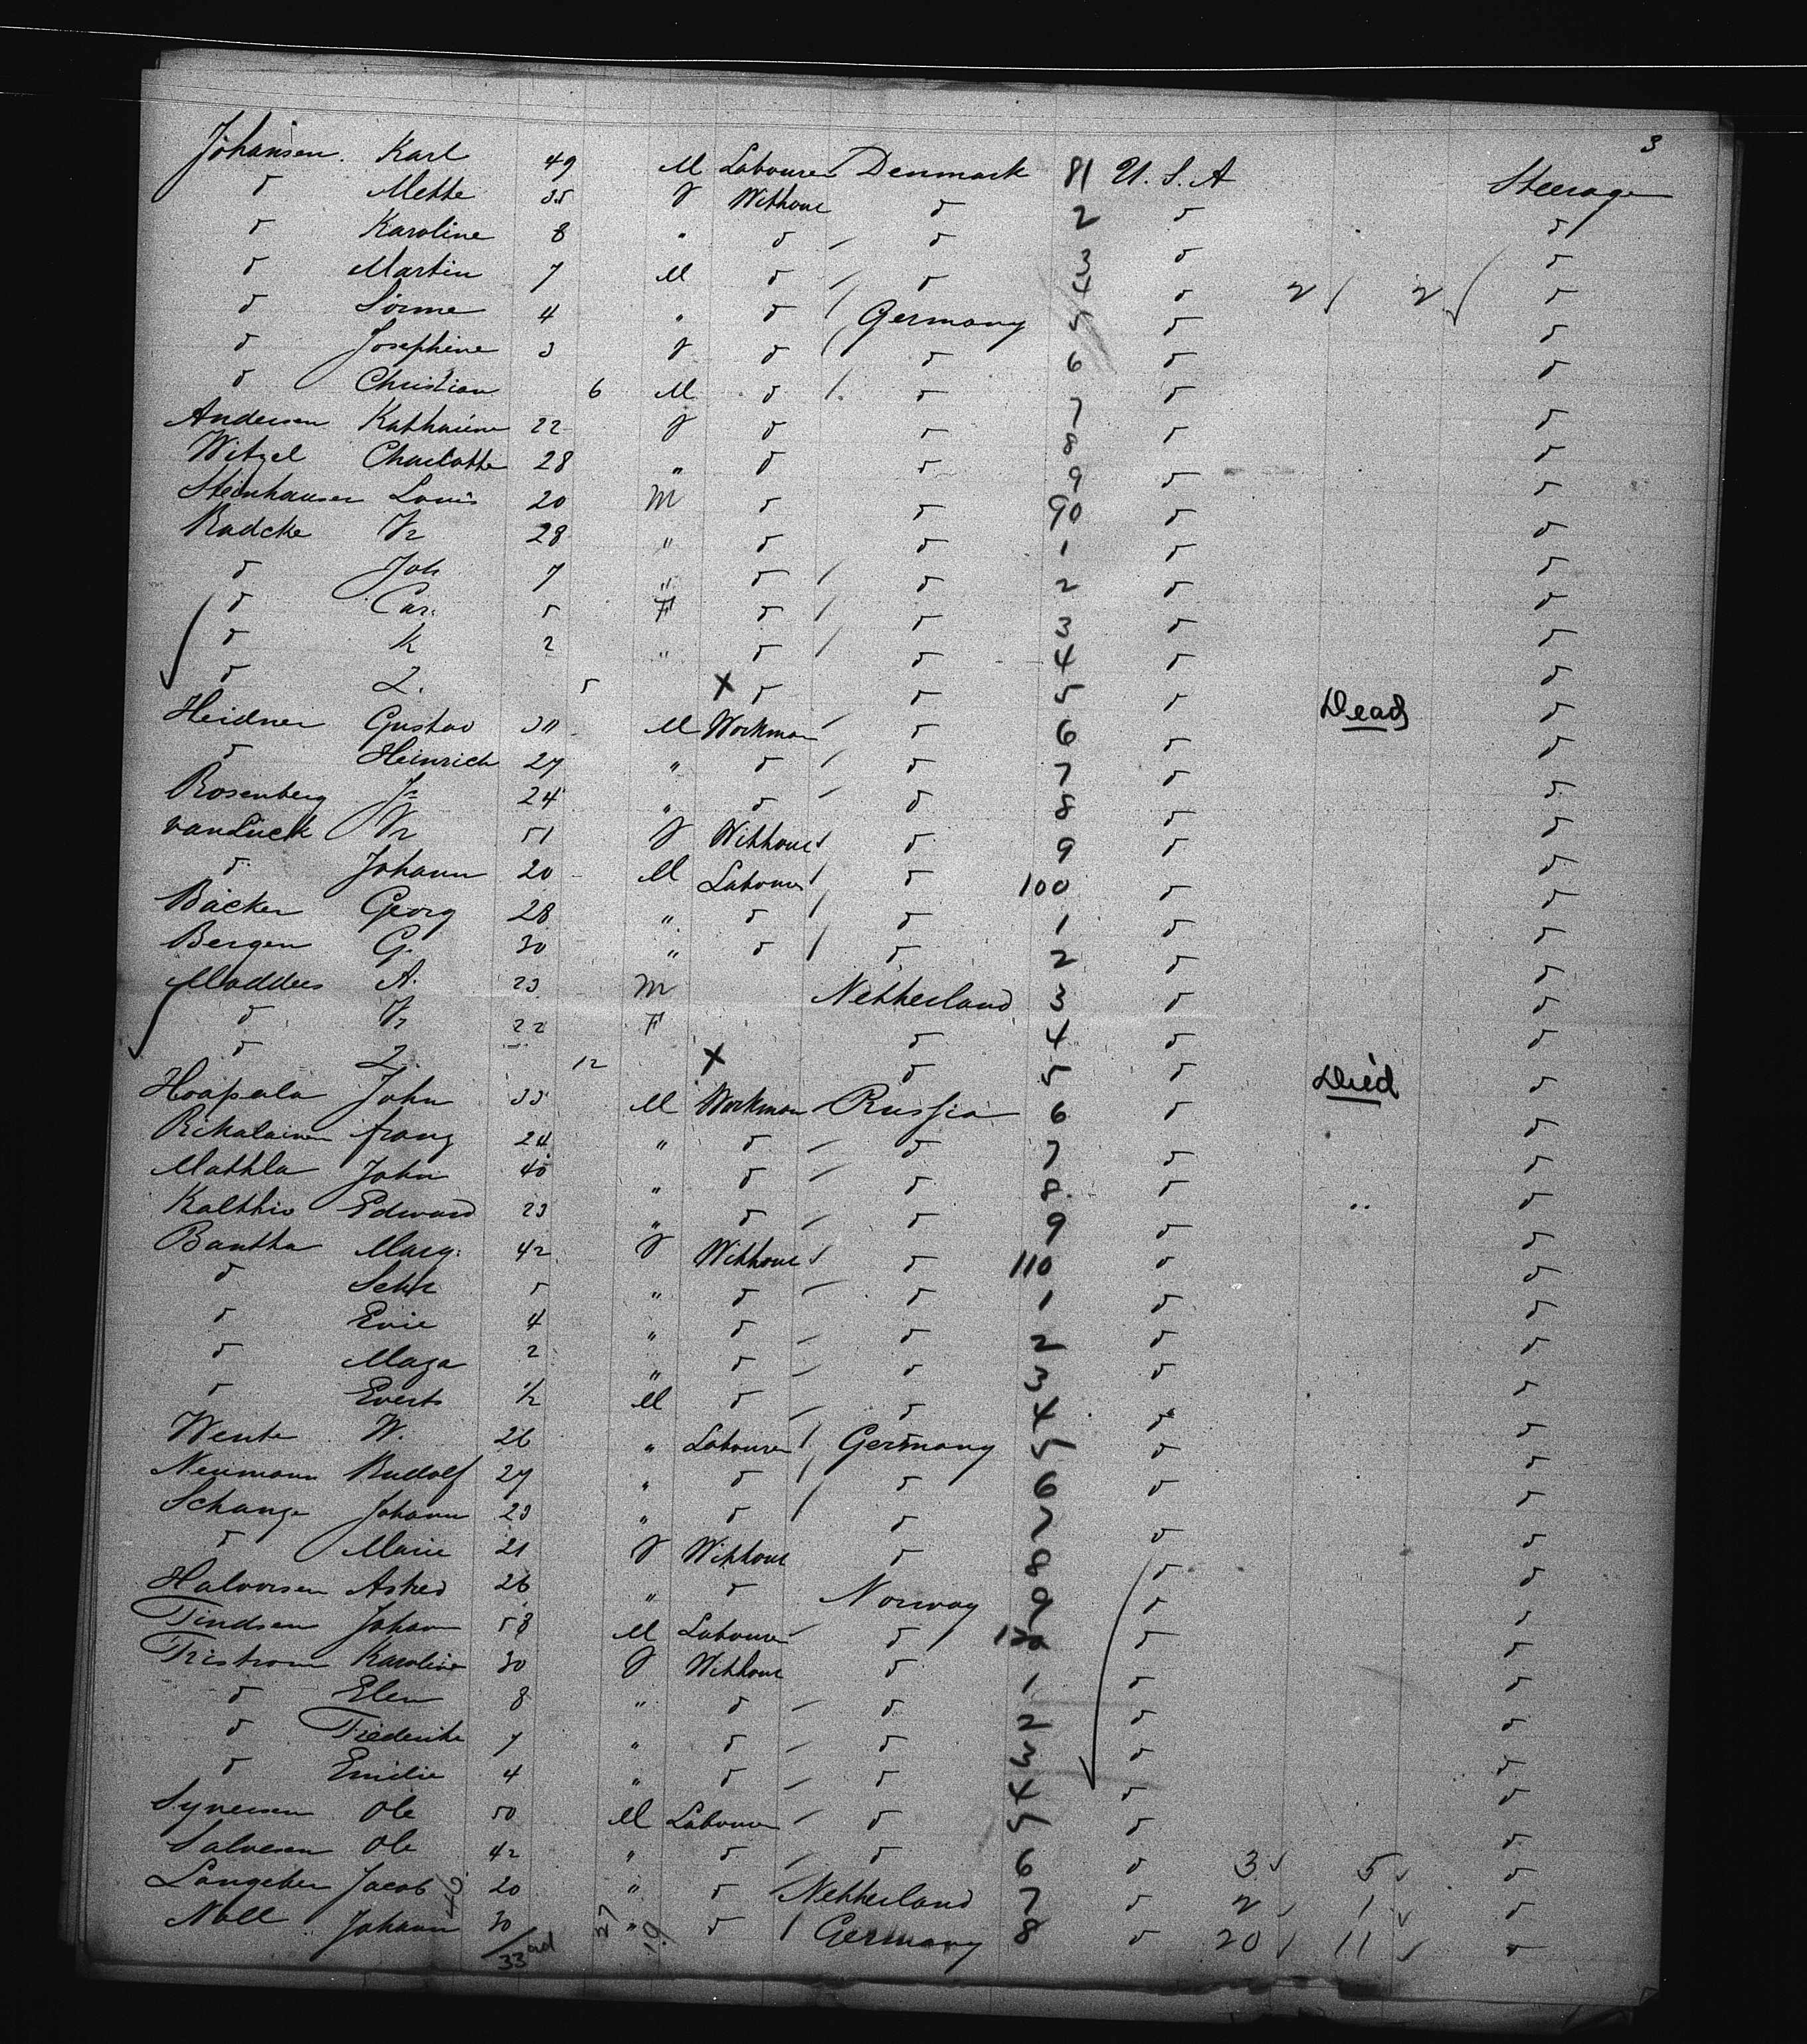 3
Johansen Karl 49 M Labourer Denmark 81 U.S.A Steerage
" Mette 35 F Without " 2 " "
" Karoline 8 " " " 3 " "
" Martin 7 M " " 4 " 2 2 "
" 4 " " Germany 5 " "
" Josephine 3 F " " 6 " "
" Christian 6 M " " 7 " "
Andersen Katharine 22 F " " 8 " "
Witzel Charlotte 28 " " " 9 " "
Steinhauser Louis 20 M " " 90 " "
Radcke Fr 28 " " " 1 " "
" Joh 7 " " " 2 " "
" Car. 5 F " " 3 " "
" K 2 " " " 4 " "
" L. 5 X " " 5 " Dead "
Heidner Gustav M Workman " 6 " "
" Heinrich 27 " " " 7 " "
Rosenberg 24 " " " 8 " "
vanLück Fr 51 F Without " 9 " "
" Johann 20 M Labourer " 100 " "
Bäcker Georg 28 " " " 1 " "
Bergen G. 30 " " " 2 " "
Madders A. 23 M Netherland 3 " "
" Fr 22 F " 4 " "
" L. 12 X " 5 " Died "
Haapala John 33 M Workman Russia 6 " "
Rikalainen franz 24 " " " 7 " "
Mathla John 40 " " " 8 " "
Kalthio Edward 23 " " " 9 " "
Bantha Marg. 42 F Without " 110 " "
" 5 " " " 1 " "
" Evie 4 " " " 2 " "
" Maza 2 " " " 3 " "
" Everts 1/2 M " " 4 " "
Wente W. 26 " Labourer Germany 5 " "
Neumann Rudolf 27 " " " 6 " "
Schange Johann 23 " " " 7 " "
" Marie 21 F Without " 8 " "
Halvorsen Astred 26 " " Norway 9 " "
Tindsen Johan 58 M Labourer " 120 " "
Tristrom Karoline 30 F Without " 1 " "
" Elen 8 " " " 2 " "
" Frederike 7 " " " 3 " "
" Emilie 4 " " " 4 " "
Syversen Ole 50 M Labourer " 5 " "
Salvesen Ole 42 " " " 6 " 3 5 "
Langeber Jacob 20 " " Netherland 7 " 2 1 "
Noll Johann 30 " " Germany 8 " 20 11 "
46 33 ad 27 19